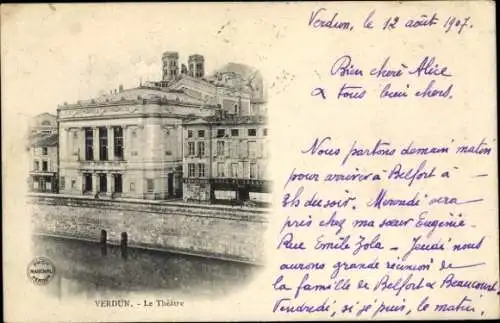 Verdun, le 12 août 1907.
Bien chère Alice
& tous bien chers.
Nous partons demain matin
pour arriver à Belfort à —
3h du soir. Mercredi sera
pris chez ma sœur Eugénie —
Rue Emile Zola — Jeudi nous
aurons grande réunion de —
la famille de Belfort & Beaucourt
Vendredi, si je puis, le matin,
VERDUN. - Le Théâtre